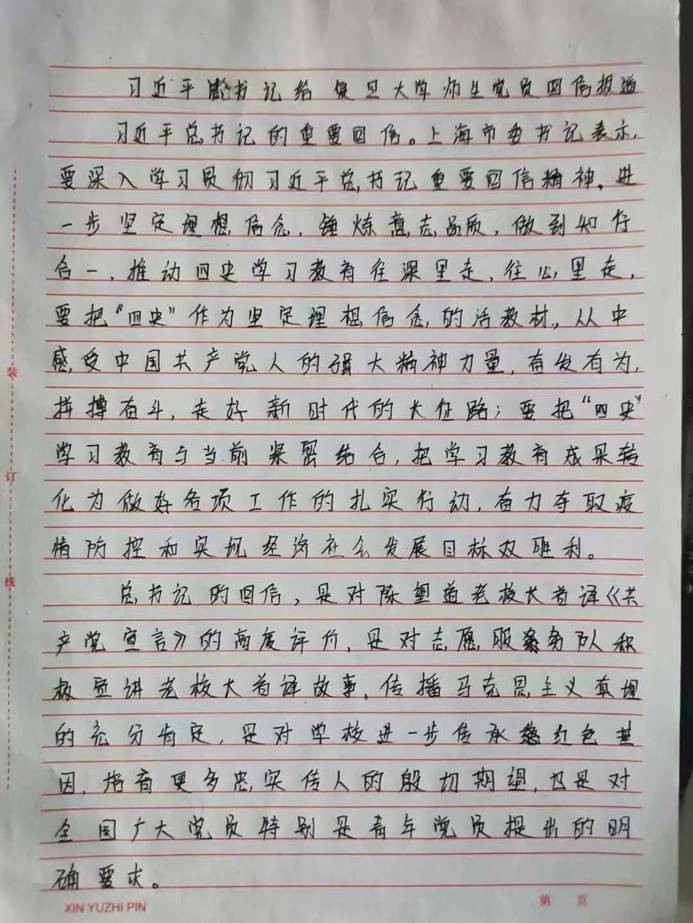 习近平总书记给复旦大学师生党员回信报道
习近平总书记的重要回信。上海市委书记表示，
要深入学习贯彻习近平总书记重要回信精神。进
一步坚定理想信念，锤炼意志品质，做到知行
合一，推动四史学习教育往深里走，往心里走，
要把“四史”作为坚定理想信念的活教材，从中
感受中国共产党人的强大精神力量，奋发有为，
拼搏奋斗，走好新时代的长征路；要把“四史”
学习教育与当前紧密结合，把学习教育成果转
化为做好各项工作的扎实行动，奋力夺取疫
情防控和实现经济社会发展目标双胜利。
总书记的回信，是对陈望道老校长首译《共
产党宣言》的高度评价，是对志愿服务队积
极宣讲老校长首译故事，传播马克思主义真理
的充分肯定，是对学校进一步传承红色基
因，培育更多忠实传人的殷切期望，也是对
全国广大党员特别是青年党员提出的明
确要求。
装
订
线
XIN YUZHI PIN
第 页